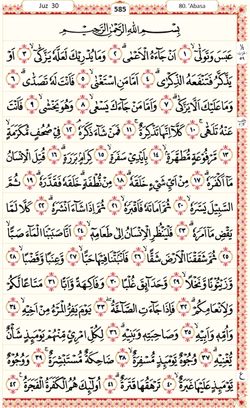 Juz 30 585 80. 'Abasa
بِسْمِ اللَّهِ الرَّحْمَٰنِ الرَّحِيمِ
عَبَسَ وَتَوَلَّىٰ ١ أَن جَاءَهُ الْأَعْمَىٰ ٢ وَمَا يُدْرِيكَ لَعَلَّهُ يَزَّكَّىٰ ٣ أَوْ
يَذَّكَّرُ فَتَنفَعَهُ الذِّكْرَىٰ ٤ أَمَّا مَنِ اسْتَغْنَىٰ ٥ فَأَنتَ لَهُ تَصَدَّىٰ ٦
وَمَا عَلَيْكَ أَلَّا يَزَّكَّىٰ ٧ وَأَمَّا مَن جَاءَكَ يَسْعَىٰ ٨ وَهُوَ يَخْشَىٰ ٩ فَأَنتَ
عَنْهُ تَلَهَّىٰ ١٠ كَلَّا إِنَّهَا تَذْكِرَةٌ ١١ فَمَن شَاءَ ذَكَرَهُ ١٢ فِي صُحُفٍ مُّكَرَّمَةٍ
١٣ مَّرْفُوعَةٍ مُّطَهَّرَةٍ ١٤ بِأَيْدِي سَفَرَةٍ ١٥ كِرَامٍ بَرَرَةٍ ١٦ قُتِلَ الْإِنسَانُ
مَا أَكْفَرَهُ ١٧ مِنْ أَيِّ شَيْءٍ خَلَقَهُ ١٨ مِن نُّطْفَةٍ خَلَقَهُ فَقَدَّرَهُ ١٩ ثُمَّ
السَّبِيلَ يَسَّرَهُ ٢٠ ثُمَّ أَمَاتَهُ فَأَقْبَرَهُ ٢١ ثُمَّ إِذَا شَاءَ أَنشَرَهُ ٢٢ كَلَّا لَمَّا
يَقْضِ مَا أَمَرَهُ ٢٣ فَلْيَنظُرِ الْإِنسَانُ إِلَىٰ طَعَامِهِ ٢٤ أَنَّا صَبَبْنَا الْمَاءَ صَبًّا
٢٥ ثُمَّ شَقَقْنَا الْأَرْضَ شَقًّا ٢٦ فَأَنبَتْنَا فِيهَا حَبًّا ٢٧ وَعِنَبًا وَقَضْبًا ٢٨
وَزَيْتُونًا وَنَخْلًا ٢٩ وَحَدَائِقَ غُلْبًا ٣٠ وَفَاكِهَةً وَأَبًّا ٣١ مَّتَاعًا لَّكُمْ
وَلِأَنْعَامِكُمْ ٣٢ فَإِذَا جَاءَتِ الصَّاخَّةُ ٣٣ يَوْمَ يَفِرُّ الْمَرْءُ مِنْ أَخِيهِ ٣٤
وَأُمِّهِ وَأَبِيهِ ٣٥ وَصَاحِبَتِهِ وَبَنِيهِ ٣٦ لِكُلِّ امْرِئٍ مِّنْهُمْ يَوْمَئِذٍ شَأْنٌ
يُغْنِيهِ ٣٧ وُجُوهٌ يَوْمَئِذٍ مُّسْفِرَةٌ ٣٨ ضَاحِكَةٌ مُّسْتَبْشِرَةٌ ٣٩ وَوُجُوهٌ
يَوْمَئِذٍ عَلَيْهَا غَبَرَةٌ ٤٠ تَرْهَقُهَا قَتَرَةٌ ٤١ أُولَٰئِكَ هُمُ الْكَفَرَةُ الْفَجَرَةُ ٤٢